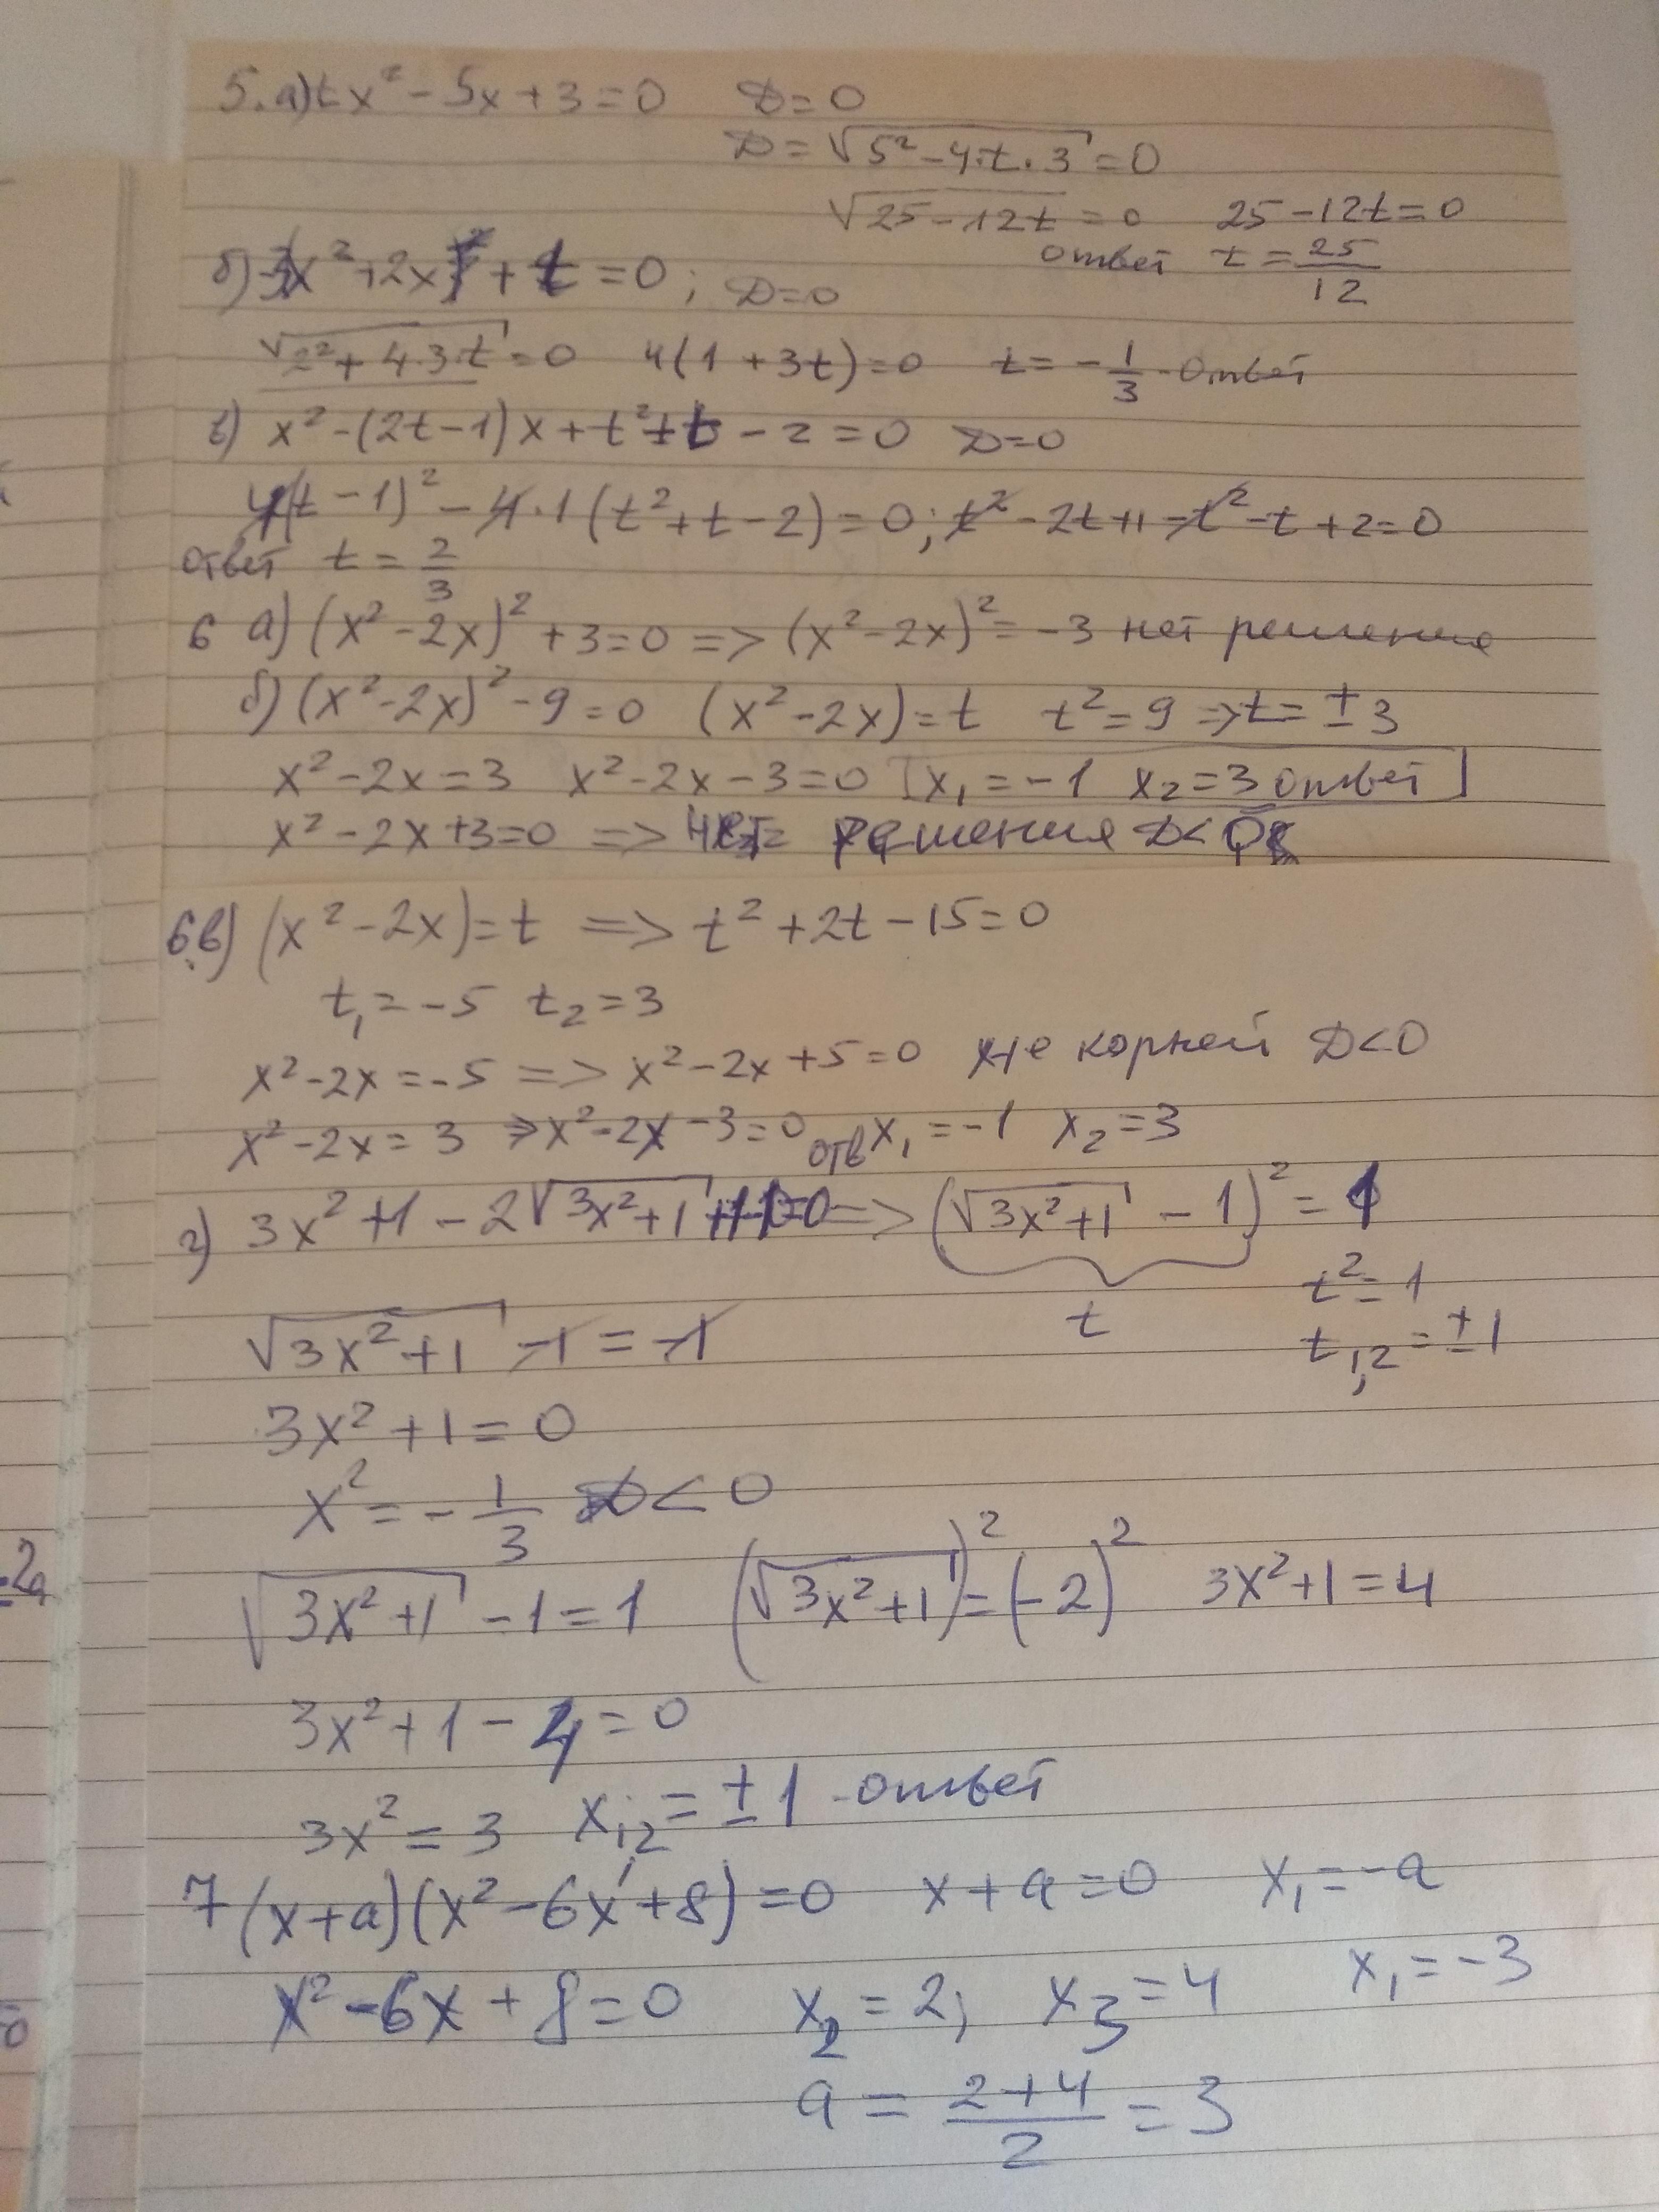 5. а) tx² - 5x + 3 = 0 D = 0
D = √(5² - 4·t·3) = 0
√(25 - 12t) = 0 25 - 12t = 0
ответ t = 25/12
б) 3x² + 2x + t = 0; D = 0
√(2² + 4·3·t) = 0 4(1 + 3t) = 0 t = -1/3 - ответ
в) x² - (2t - 1)x + t² + t - 2 = 0 D = 0
4(t - 1)² - 4·1(t² + t - 2) = 0; t² - 2t + 1 - t² - t + 2 = 0
ответ t = 2/3
6 а) (x² - 2x)² + 3 = 0 => (x² - 2x)² = -3 нет решения
б) (x² - 2x)² - 9 = 0 (x² - 2x) = t t² = 9 => t = ±3
x² - 2x = 3 x² - 2x - 3 = 0 [x₁ = -1 x₂ = 3 ответ]
x² - 2x + 3 = 0 => нет решения D < 0
6.в) (x² - 2x) = t => t² + 2t - 15 = 0
t₁ = -5 t₂ = 3
x² - 2x = -5 => x² - 2x + 5 = 0 корней D < 0
x² - 2x = 3 => x² - 2x - 3 = 0 отв x₁ = -1 x₂ = 3
г) 3x² + 1 - 2√(3x² + 1) = 0 => (√(3x² + 1) - 1)² = 1
t t² = 1
√(3x² + 1) - 1 = -1 t₁,₂ = ±1
3x² + 1 = 0
x² = -1/3 < 0
√(3x² + 1) - 1 = 1 (√(3x² + 1))² = (-2)² 3x² + 1 = 4
3x² + 1 - 4 = 0
3x² = 3 x₁,₂ = ±1 - ответ
7 (x + a)(x² - 6x + 8) = 0 x + a = 0 x₁ = -a
x² - 6x + 8 = 0 x₂ = 2; x₃ = 4 x₁ = -3
a = (2 + 4)/2 = 3